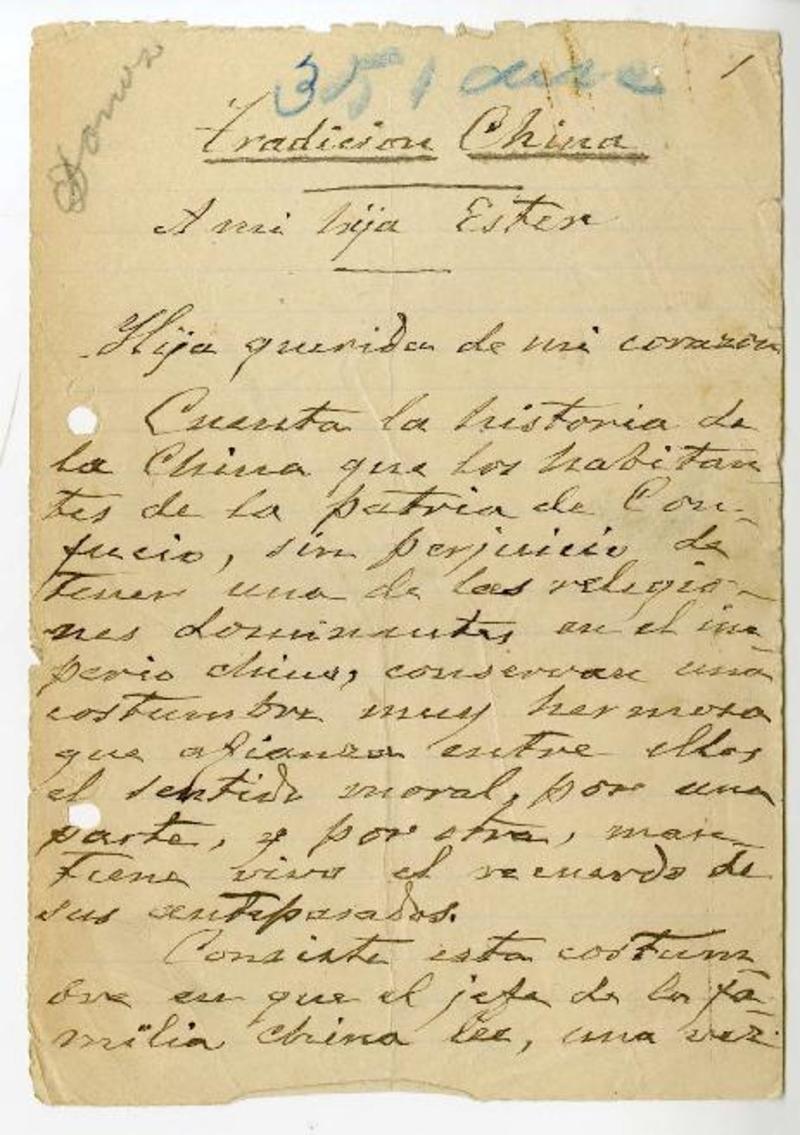 1
351
Tradicion China
A mi hija Ester
Hija querida de mi corazon
Cuenta la historia de
la China que los habitan
tes de la patria de Con-
fucio, sin perjuicio de
tener una de las religio-
nes dominantes en el im
perio chino, conservan una
costumbre muy hermosa
que afianza entre ellos
el sentido moral, por una
parte, y por otra, man-
tiene vivo el recuerdo de
sus antepasados.
Consiste esta costum
bre en que el jefe de la fa-
milia china lee, una vez